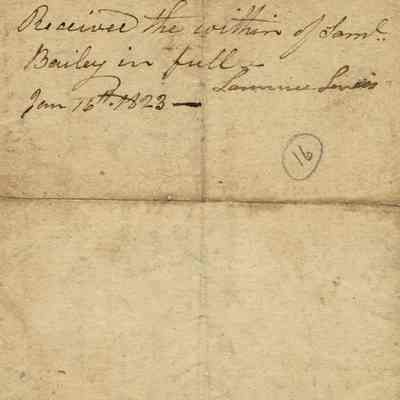 Received the within of Saml.
Bailey in full —
Lawrence Lewis
Jan 16th. 1823 —
16